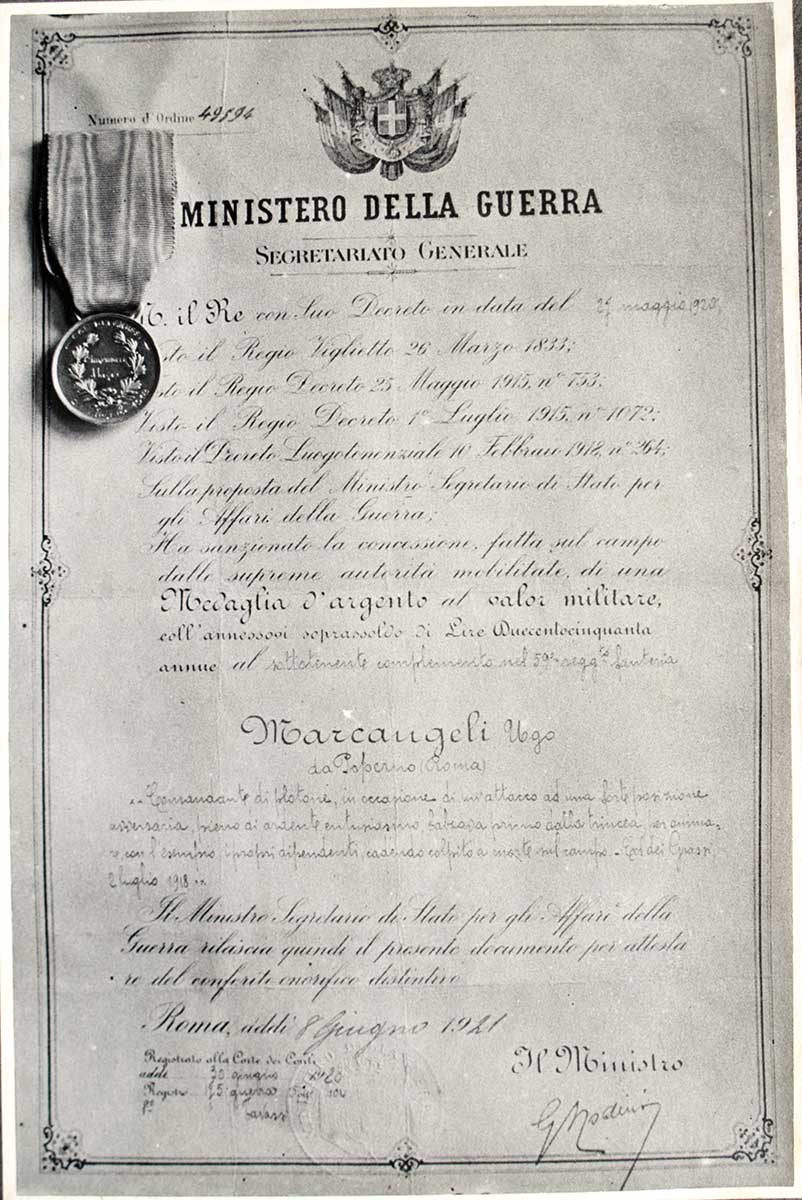 Numero d'Ordine 49594
MINISTERO DELLA GUERRA
SEGRETARIATO GENERALE
M. il Re con Suo Decreto in data del 27 maggio 1920,
sto il Regio Viglietto 26 Marzo 1833;
sto il Regio Decreto 25 Maggio 1915, n° 753;
Visto il Regio Decreto 1° Luglio 1915, n° 1072;
Visto il Decreto Luogotenenziale 10 Febbraio 1918, n° 264;
Sulla proposta del Ministro Segretario di Stato per
gli Affari della Guerra;
Ha sanzionato la concessione, fatta sul campo
dalle supreme autorità mobilitate, di una
Medaglia d'argento al valor militare,
coll'annessovi soprassoldo di Lire Duecentocinquanta
annue al sottotenente complemento nel 59° regg.to fanteria
Marcangeli Ugo
da Piperno (Roma)
"Comandante di plotone, in occasione di un'attacco ad una forte posizione
avversaria, pieno di ardente entusiasmo balzava primo dalla trincea, per anima-
re, con l'esempio, i propri dipendenti, cadendo colpito a morte sul campo. - Col dei Grassi,
2 luglio 1918".
Il Ministro Segretario di Stato per gli Affari della
Guerra rilascia quindi il presente documento per attesta
re del conferito onorifico distintivo
Roma, addì 8 Giugno 1921
Registrato alla Corte dei Conti
addì 30 giugno 1920
Registro 25 guerra
Il Ministro